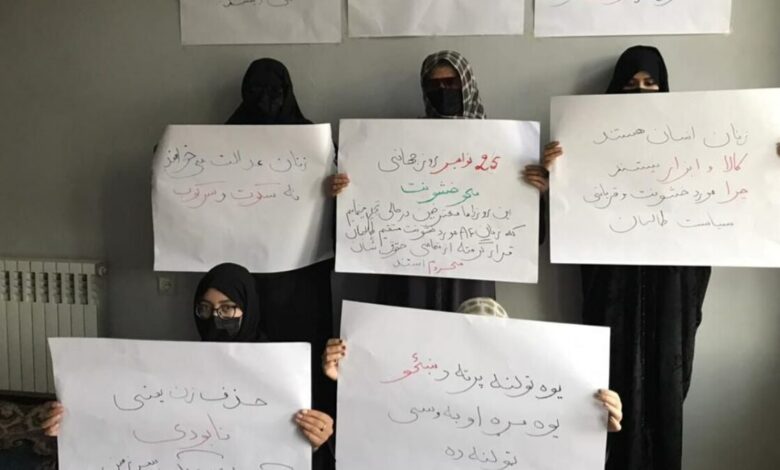 زنان عدالت می‌خواهند
نه سکوت و سرکوب
25 نوامبر روز جهانی
محو خشونت
این روز را ما معترضین در حالی تجلیل مینمایم
که زنان AF مورد خشونت مستقیم طالبان
قرار گرفته از تمامی حقوق شان
محروم استند
زنان انسان هستند
کالا و ابزار نیستند
چرا مورد خشونت و قربانی
سیاست طالبان
حذف زن یعنی
نابودی
یوه ټولنه پرته د ښځو
یوه مړه او به وسی
ټولنه ده